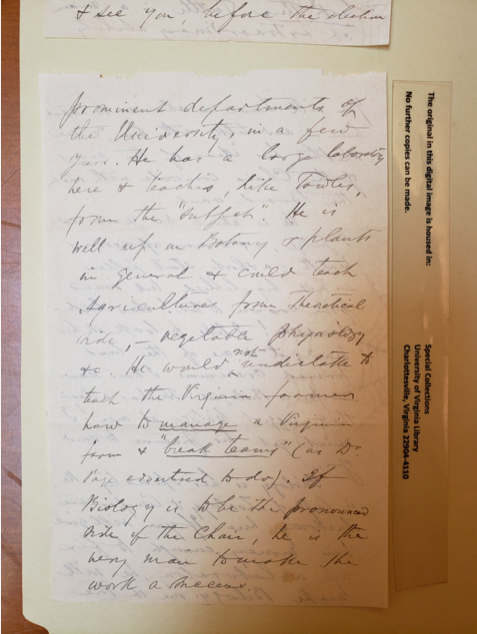 & see you, before the election
prominent departments of
the University, in a few
years. He has a large laboratory
here & teaches, like Towles,
from the "subject". He is
well up on Botany & plants
in general & could teach
Agriculture from Theoretical
side, – vegetable physiology
&c He would not undertake to
teach the Virginia farmer
how to manage a Virginia
farm & "break teams" (as Dr
Page advertised to do). If
Biology is to be the pronounced
side of the Chair, he is the
very man to make the
work a success
The original in this digital image is housed in:
No further copies can be made.
Special Collections
University of Virginia Library
Charlottesville, Virginia 22904-4110